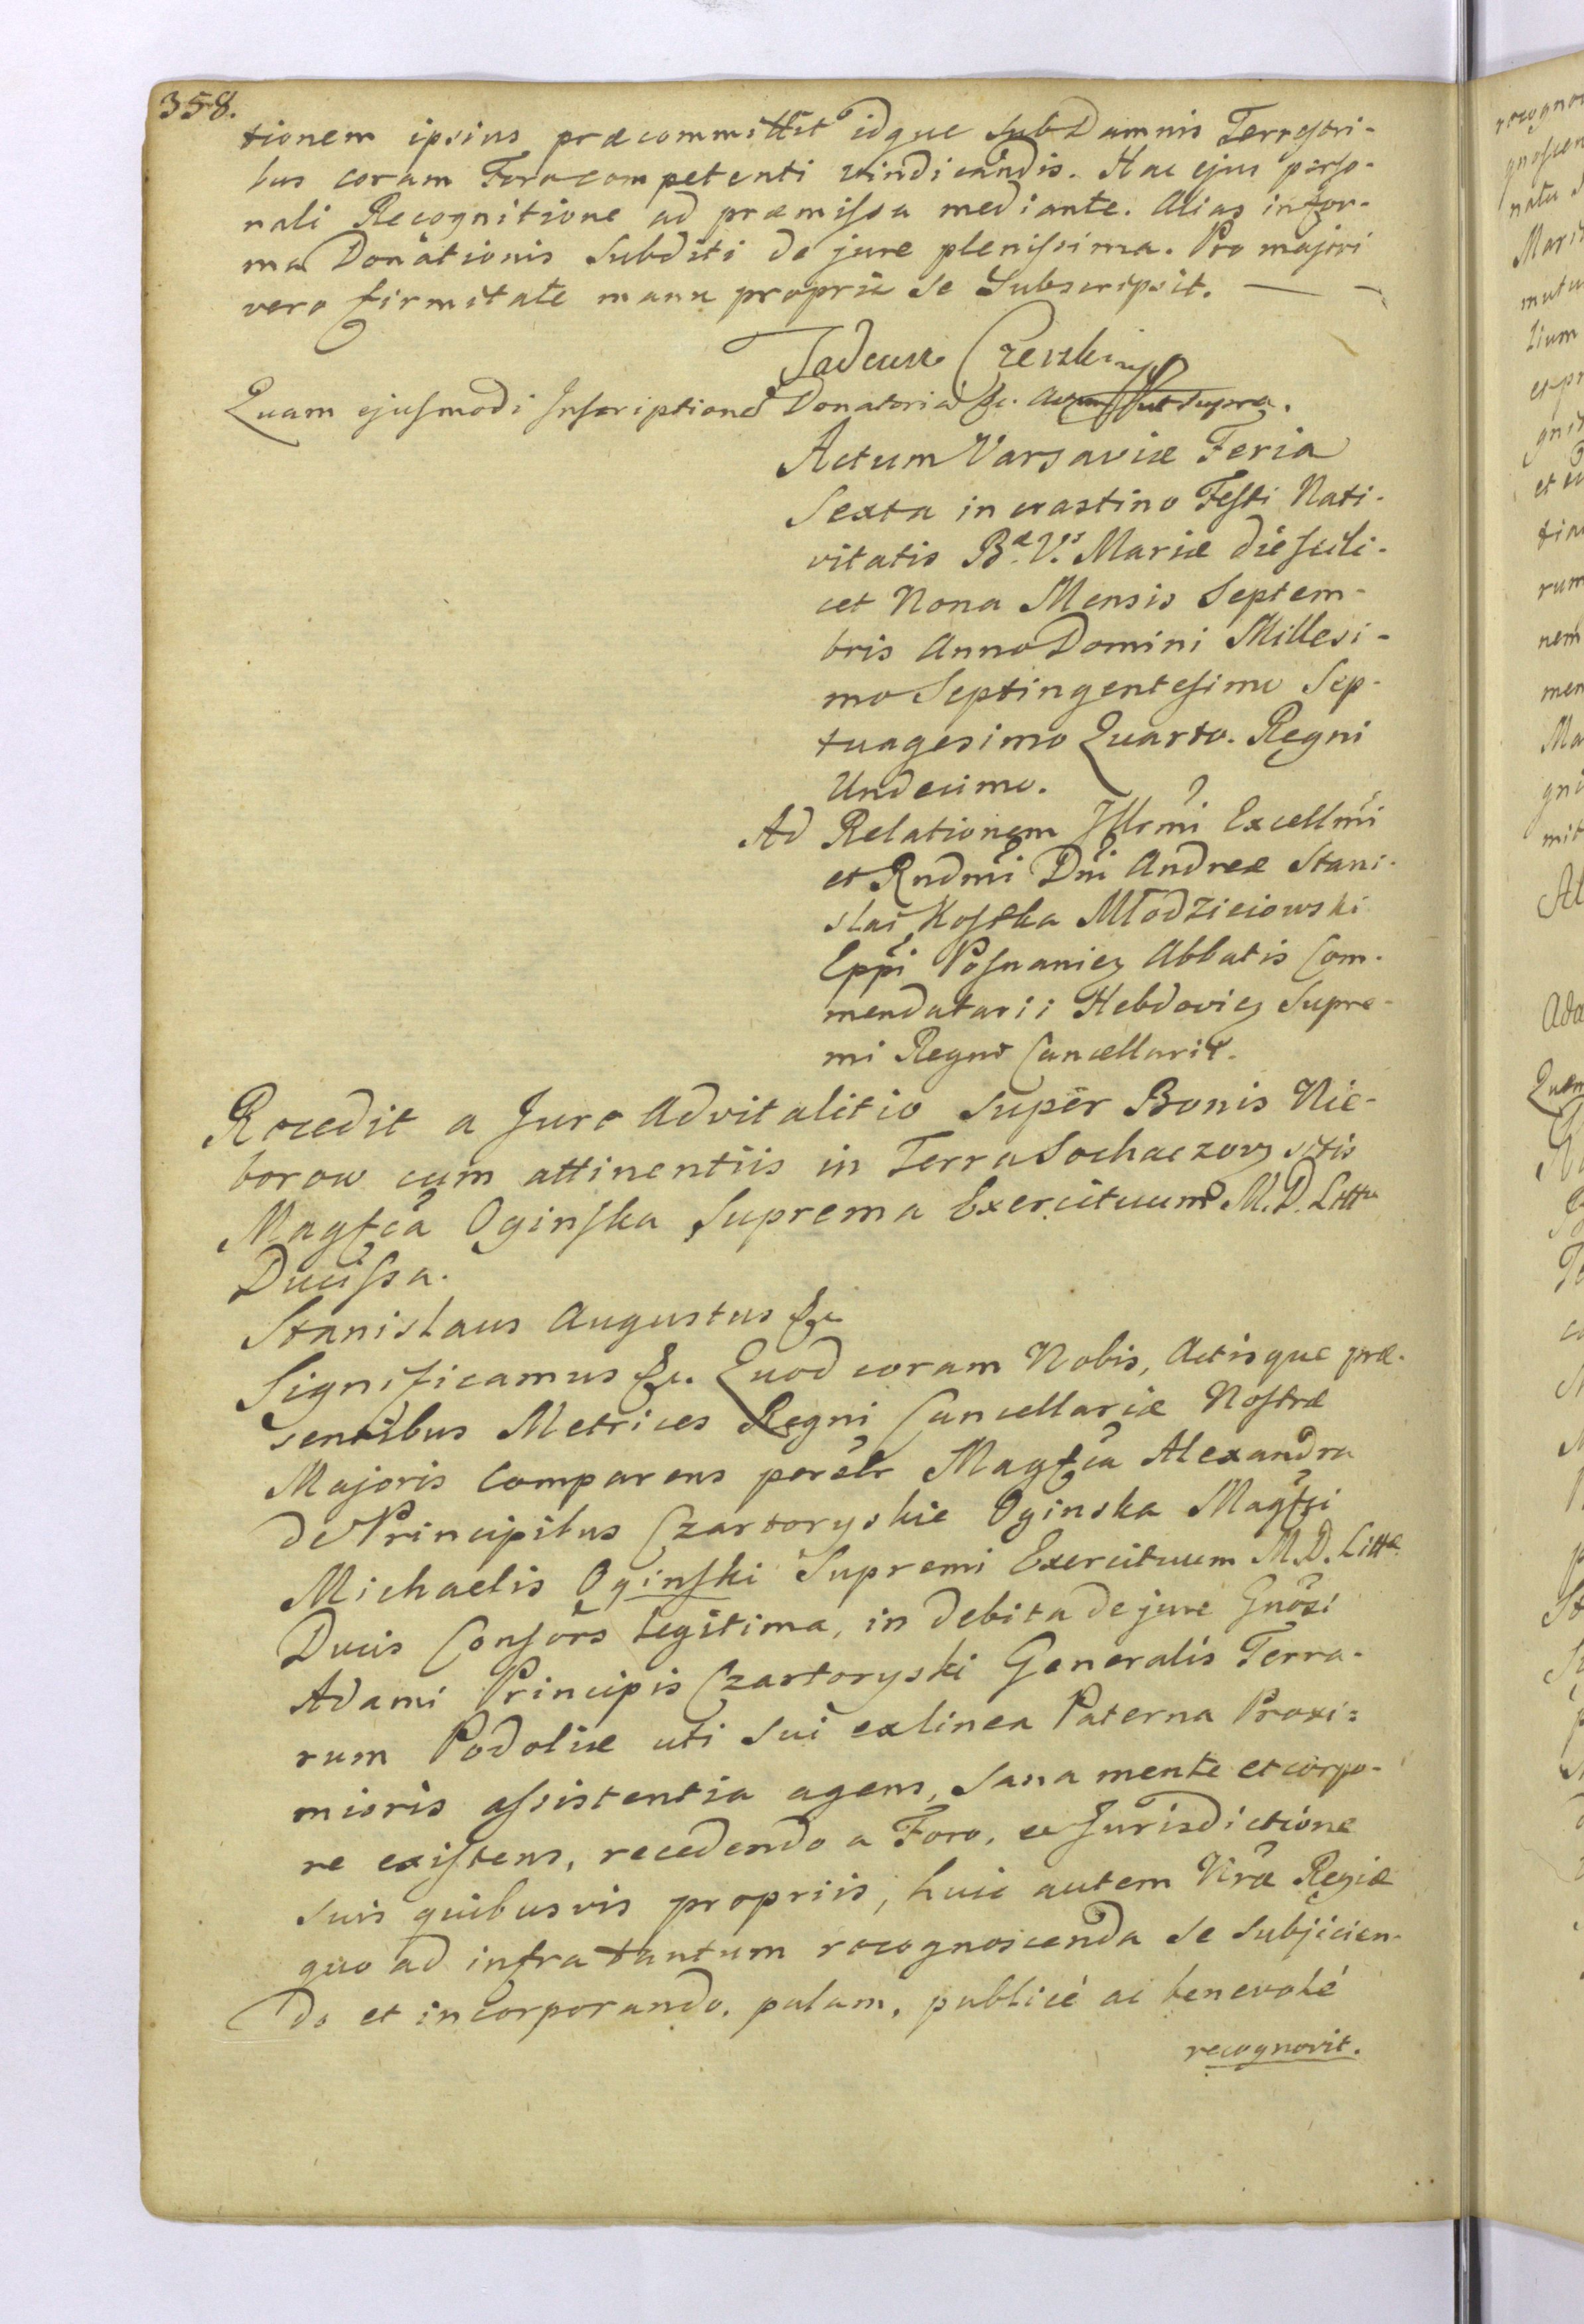 358.
tionem ipsius præcommittit idque sub Damnis Terrestri-
bus coram Foro competenti vindicandis. Hac ejus perso-
nali Recognitione ad præmissa mediante. Alias in for-
ma Donationis Subditi de jure plenissima. Pro majori
vero firmitate manu propria se Subscripsit. —
Tadeusz
Quam ejusmodi Inscriptionem Donatoriã &c. Actum ut supra.
Actum Varsaviæ Feria
Sexta in crastino Festi Nati-
vitatis Bæ. Vs. Mariæ die scili-
cet Nona Mensis Septem-
bris Anno Domini Millesi-
mo Septingentesimo Sep-
tuagesimo Quarto. Regni
Undecimo.
Ad Relationem Illrmi Excellmi
et Rndmi Dni Andreæ Stani-
slai Kostka Młodzieiowski
Eppi Posnanien Abbatis Com-
mendatarii Hebdovien Supre-
mi Regni Cancellarii.
Recedit a Jure Advitalitio super Bonis Nie-
borow cum attinentiis in Terra Sochaczovien sitis
Magfca Oginska Suprema Exercituum M. D. Litt
Ducissa.
Stanislaus Augustus &c
Significamus &c. Quod coram Nobis, Actisque præ-
sentibus Metrices Regni Cancellariæ Nostræ
Majoris Comparens persolr Magfca Alexandra
de Principibus Czartoryskie Oginska Magfci
Michaelis Oginski Supremi Exercituum M. D. Littæ
Ducis Consors legitima, in debita de jure Gnosi
Adami Principis Czartoryski Generalis Terra-
rum Podoliæ uti sui ex linea Paterna Proxi=
mioris assistentia agens, sana mente et corpo-
re existens, recedendo a Foro, et Jurisdictione
suis quibusvis propriis, huic autem Nræ Regiæ
quo ad infra tantum recognoscenda se subjicien-
do et incorporando, palam, publicè ac benevolè
recognovit.